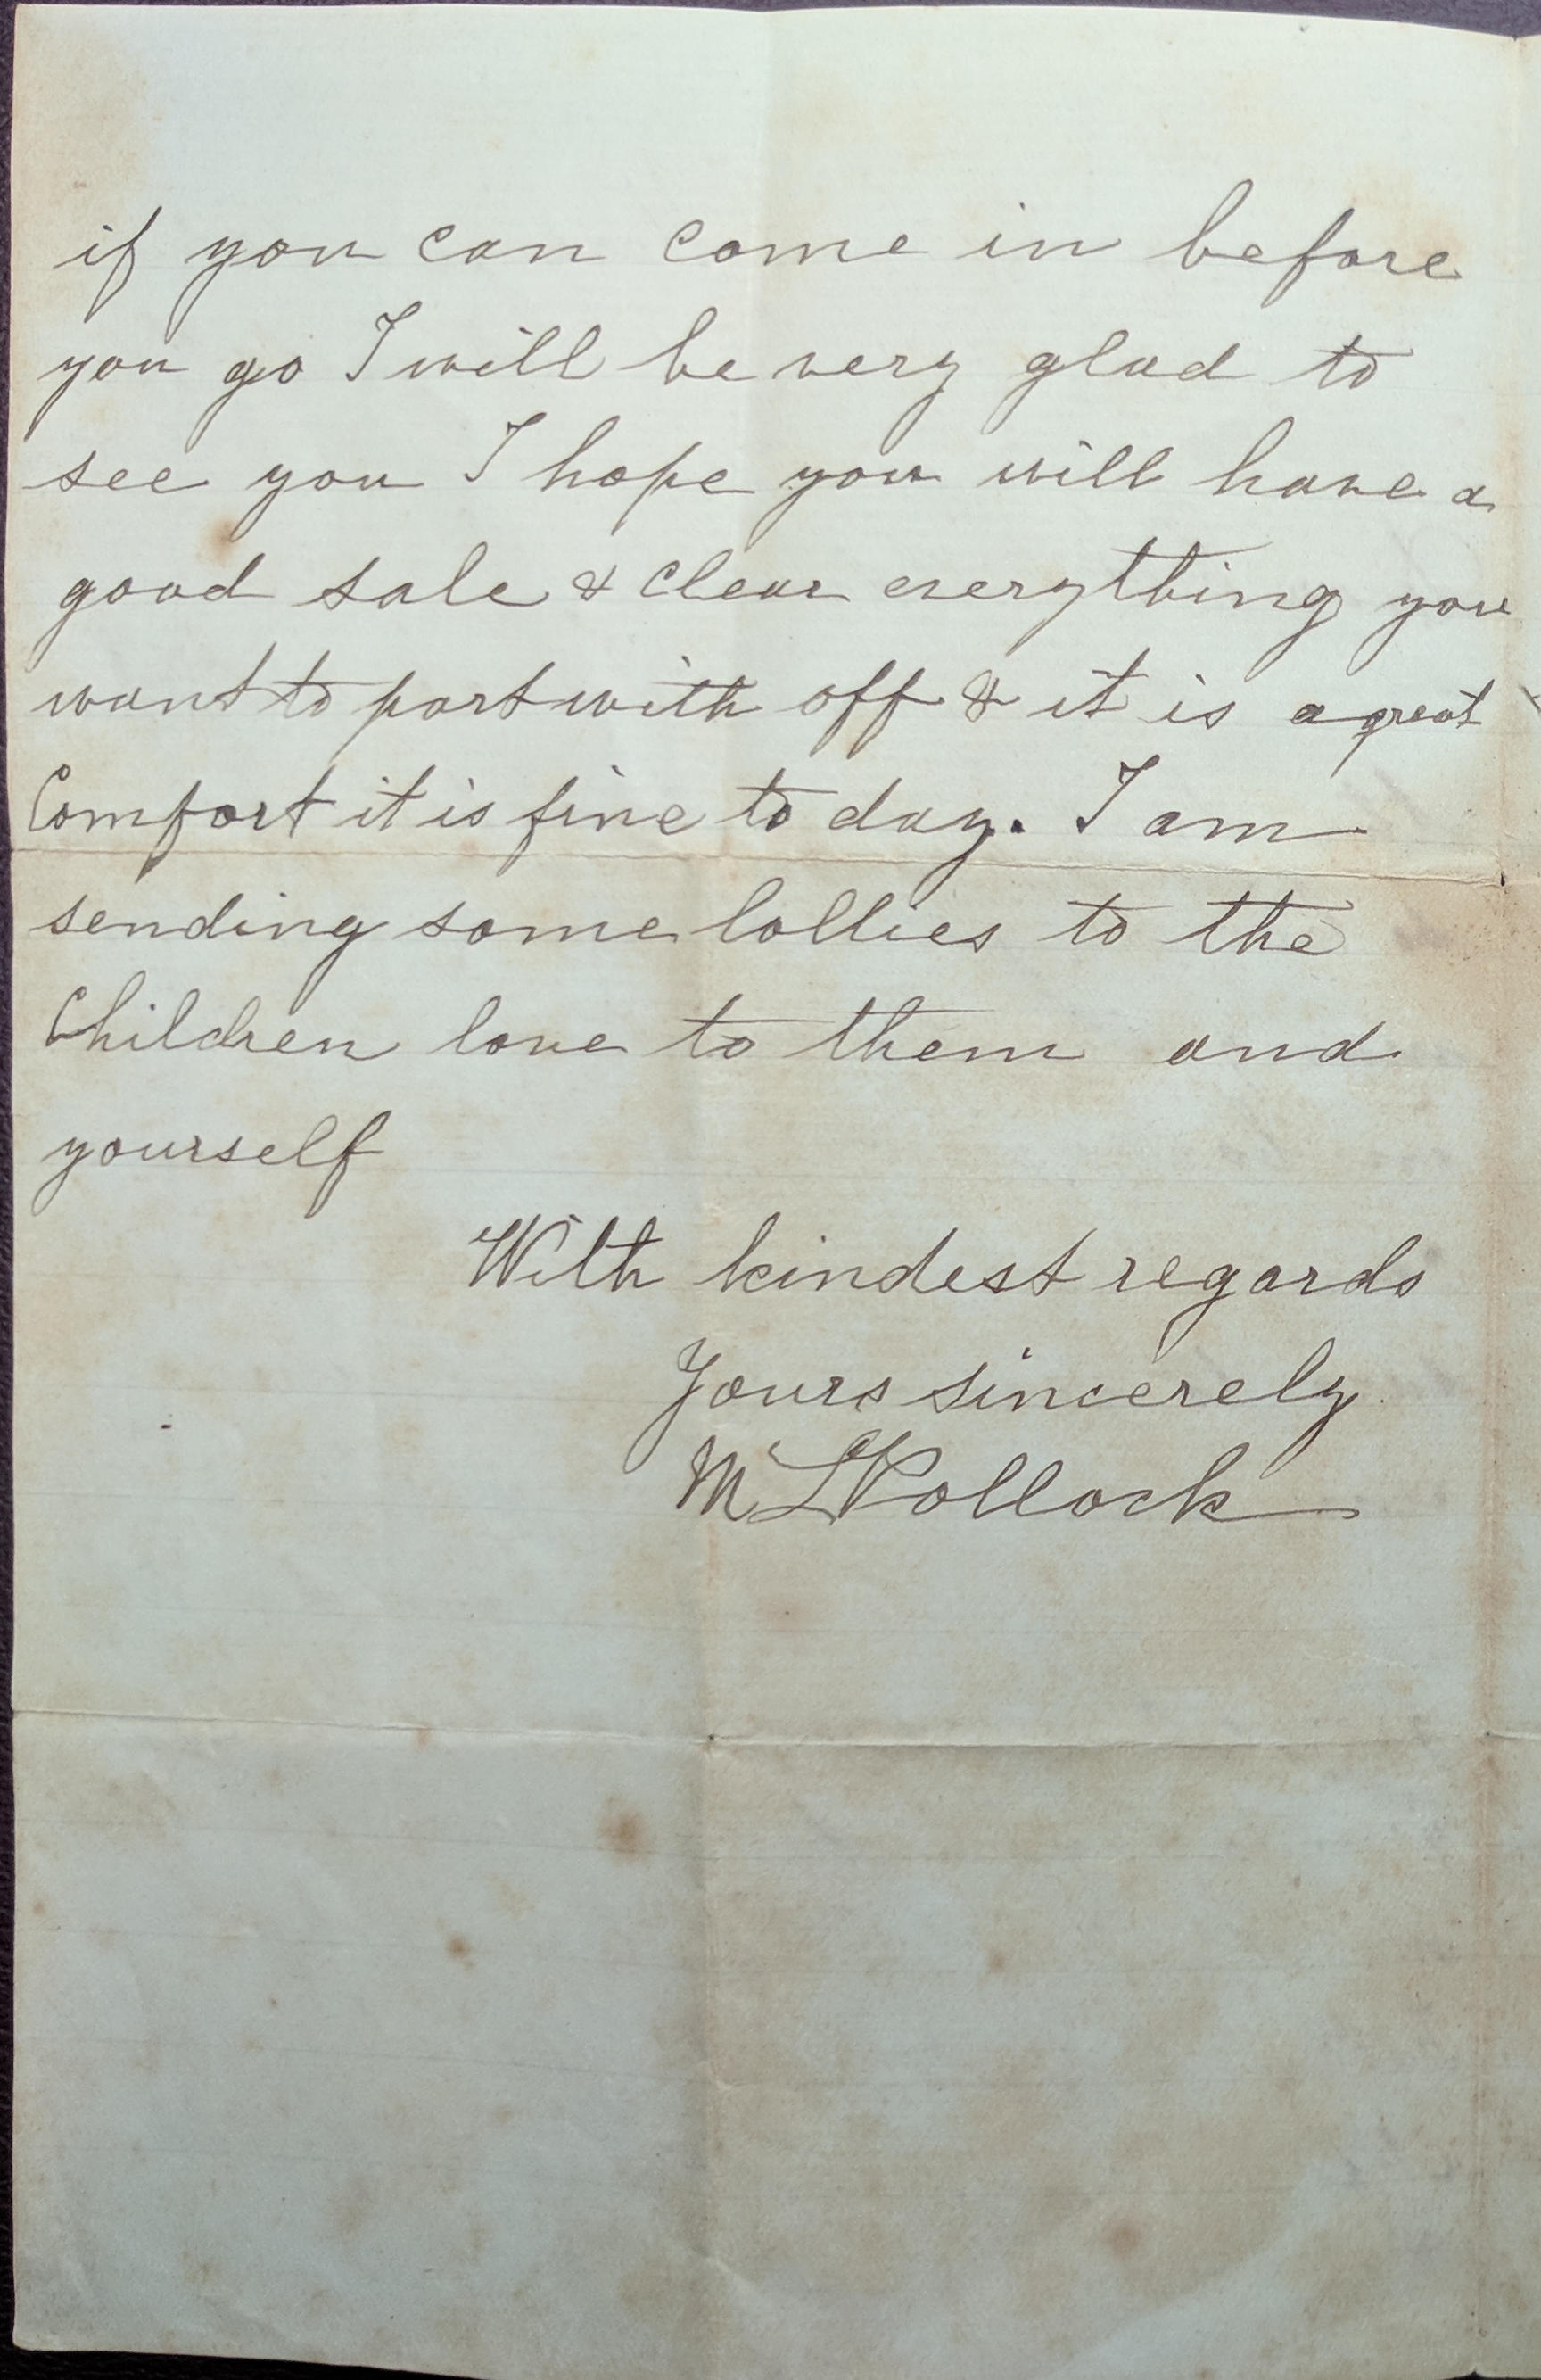 if you can come in before
you go I will be very glad to
see you I hope you will have a
good sale & clear everything you
want to part with off & it is a great
Comfort it is fine to day. I am
sending some lollies to the
Children love to them and
yourself
With kindest regards
Yours sincerely
M L Pollock